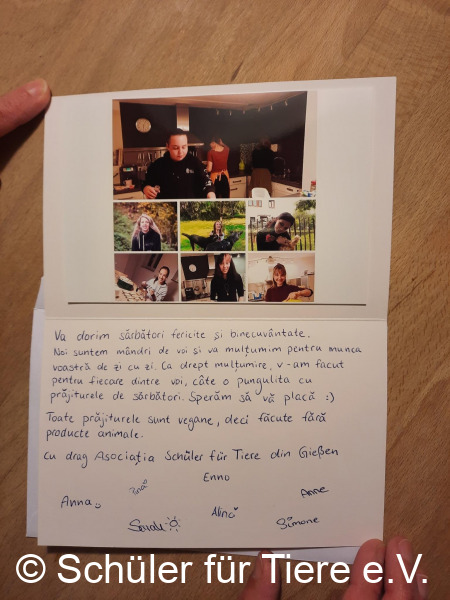 Va dorim sărbători fericite și binecuvântate.
Noi suntem mândri de voi și va mulțumim pentru munca
voastră de zi cu zi. Ca drept mulțumire, v-am facut
pentru fiecare dintre voi, câte o pungulita cu
prăjiturele de sărbători. Sperăm să vă placă :)
Toate prăjiturele sunt vegane, deci făcute fără
producte animale.
Cu drag Asociația Schüler für Tiere din Gießen
Enno
Anne
Anna
Alina
Sarah
Simone
© Schüler für Tiere e.V.